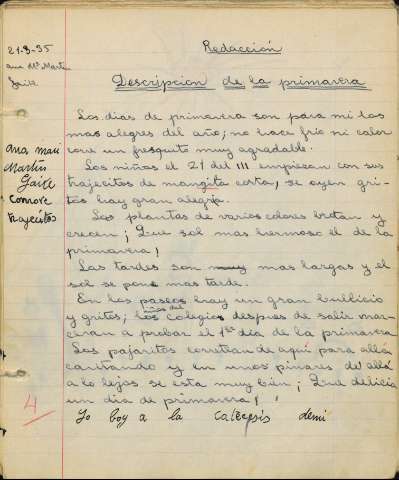 21-3-35
ana Mª Martin
Gaite
Redacción
Descripcion de la primavera
Los dias de primavera son para mi los
mas alegres del año; no hace frio ni calor
core un fresquito muy agradable.
Los niños el 21 del III empiecan con sus
trajecitos de mangita corta, se oyen gri-
tos hay gran alegria.
Las plantas de varios colores brotan y
crecen ¡ Que sol mas hermoso el de la
primavera!
Las tardes son muy mas largas y el
sol se pone mas tarde.
En los paseos hay un gran bullicio
y gritos; los niños del colegio despues de salir mar-
charan a probar el 1er dia de la primavera
Los pajaritos corretean de aqui para allá
cantando y en unos pinares del allá
a lo lejos se esta muy bien ¡ Que delicia
un dia de primavera!
Yo boy a la catecesis demi
ana mari
Martin
Gaite
conrore
trajecitos
4